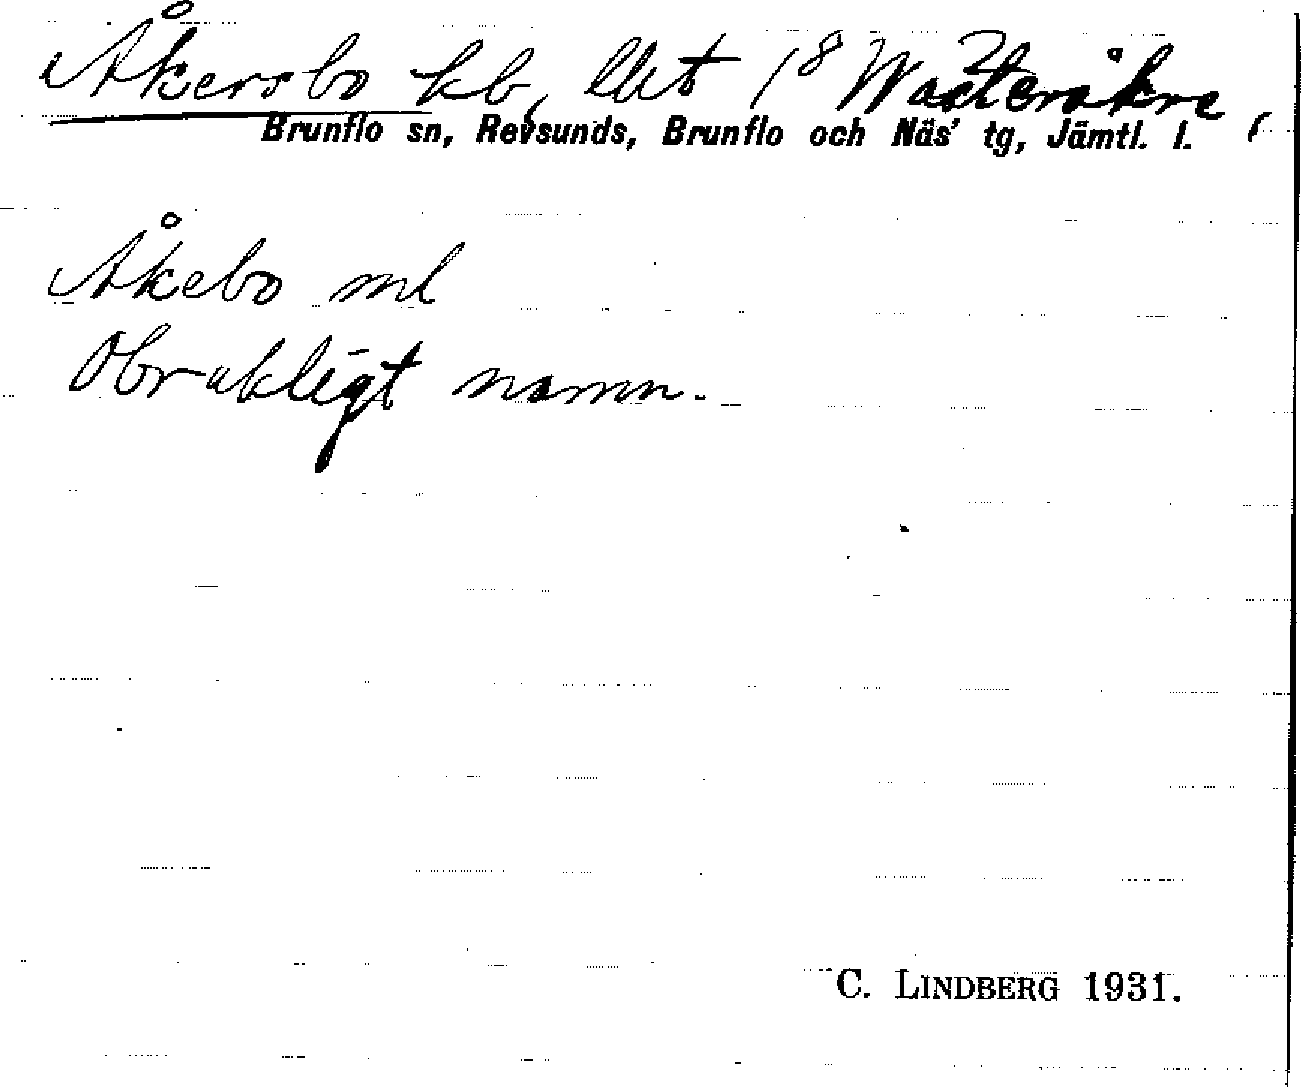 Åkersbo kb, litt 1⁸ Västeråkre,
Brunflo sn, Revsunds, Brunflo och Näs' tg, Jämtl. l.
Åkebo ml
Obrukligt namn.
C. LINDBERG 1931.